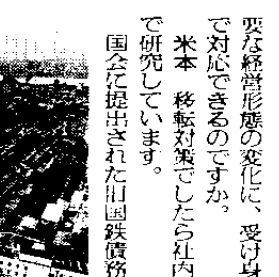 要な経営形態の変化に、受け身
で対応できるのですか。
米本　移転対策でしたら社内
で研究しています。
国会に提出された旧国鉄債務